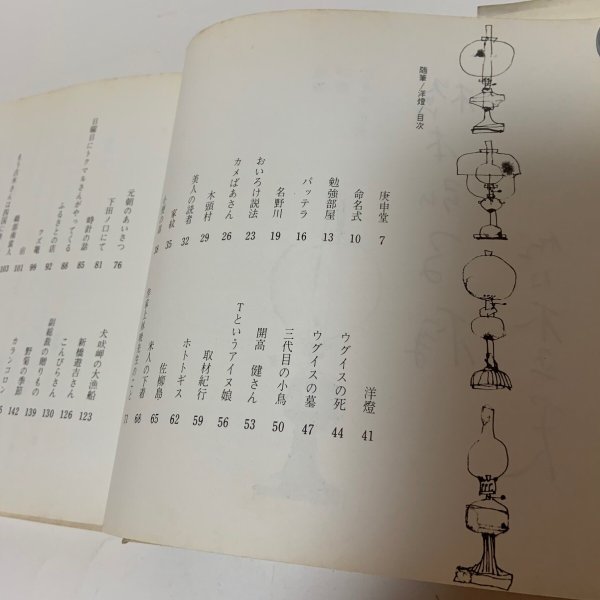 随筆/洋燈/目次
庚申堂 7
命名式 10
勉強部屋 13
バッテラ 16
名野川 19
おいろけ説法 23
カメばあさん 26
木頭村 29
美人の読者 32
家紋 35
38
洋燈 41
ウグイスの死 44
ウグイスの墓 47
三代目の小鳥 50
開高 健さん 53
Tというアイヌ娘 56
取材紀行 59
ホトトギス 62
佐柳島 65
米人の下君 68
71
元朝のあいさつ 76
下田ノ口にて 81
時計の話 85
日曜日にトクマルさんがやってくる 88
ふるさとの店 92
99
宿 101
103
犬吠岬の大漁船 123
新橋遊吉さん 126
こんぴらさん 130
副総裁の贈りもの 139
野菊の季節 142
カランコロン